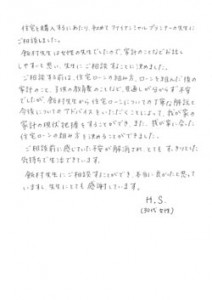 住宅を購入するにあたり、初めてファイナンシャルプランナーの先生に
ご相談をしました。
鈴村先生は女性の先生でしたので、家計のことなどお話し
しやすいと思い、先生にご相談することに決めました。
ご相談する前は、住宅ローンの組み方、ローンを組んだ後の
家計のこと、子供の教育費のことなど、見通しが分からず不安
でしたが、鈴村先生から住宅ローンについての丁寧な解説と
今後についてのアドバイスをいただくことによって、我が家の
家計の現状把握をすることができ、また、我が家に合った
住宅ローンの組み方を決めることができました。
ご相談前に感じていた不安が解消され、とても、すっきりした
気持ちで生活できています。
鈴村先生にご相談することができ、本当に良かったと思って
いますし、先生にとても感謝しています。
H.S.
(30代 女性)